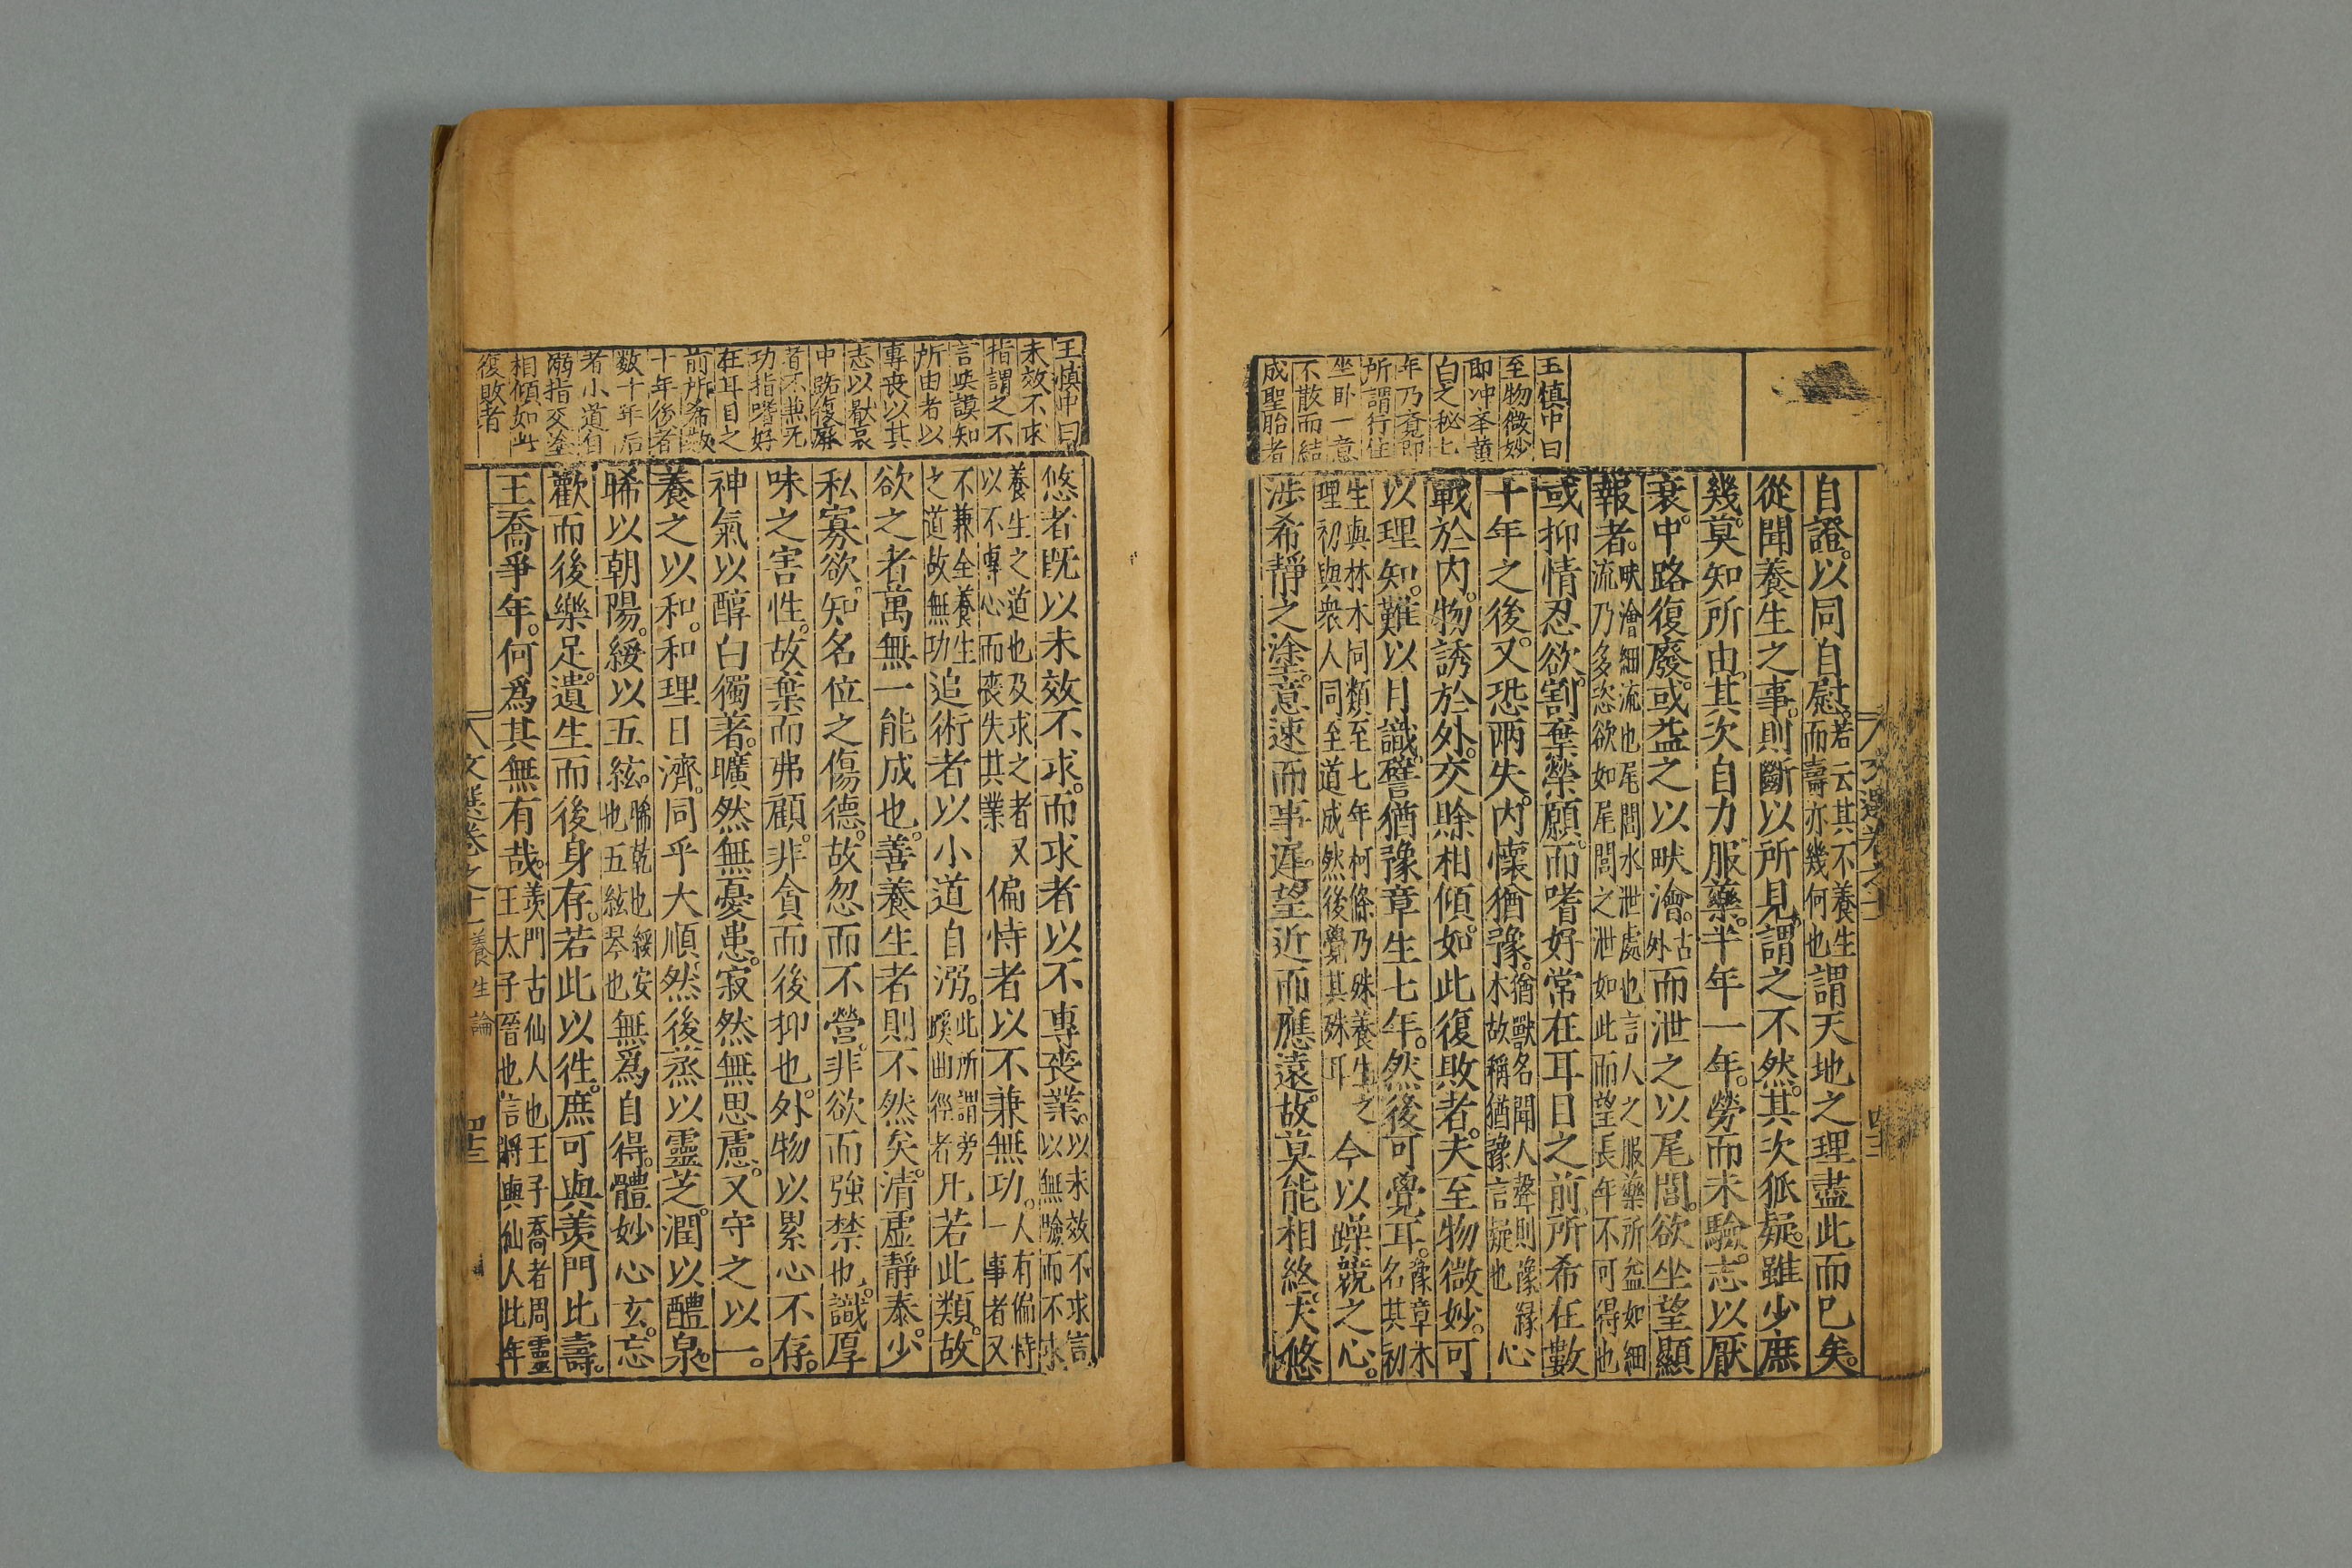 王慎中曰
至物微妙
即冲举黄
白之秘七
年乃覺即
所謂行住
坐卧一意
不散而結
成聖胎者
自證。以同自慰。若云其不養生而壽亦幾何也謂天地之理盡此而已矣。
從聞養生之事。則斷以所見。謂之不然。其次狐疑。雖少庶
幾。莫知所由。其次自力服藥。半年一年。勞而未驗。志以厭
衰。中路復廢。或益之以畎澮。古外而泄之以尾閭。欲坐望顯
報者。畎澮細流也尾閭水泄處也言人之服藥所益如細流乃多恣欲如尾閭之泄如此而望長年不可得也
或抑情忍欲。割棄榮願。而嗜好常在耳目之前。所希在數
十年之後。又恐兩失。內懷猶豫。猶獸名聞人聲則豫緣木故稱猶豫言疑也心
戰於內。物誘於外。交賒相傾。如此復敗者。夫至物微妙。可
以理知。難以目識。譬猶豫章生七年。然後可覺耳。豫章木名其初
生與林木同類至七年柯條乃殊養生之理初與衆人同至道成然後覺其殊耳今以躁競之心。
涉希靜之塗。意速而事遲。望近而應遠。故莫能相終。夫悠
文選卷之十一
四十二
王慎中曰
未效不求
指謂之不
言英謨知
所由者以
專喪以其
志以厭衰
中路復廢
者不兼无
功指嗜好
在耳目之
前所希数
十年後者
数十年后
者小道自
溺指交塗
相傾如此
復敗者
悠者既以未效不求。而求者以不專喪業。以未效不求言以無驗而不求
養生之道也及求之者又以不專心而喪失其業偏恃者以不兼無功。人有偏恃一事者又
不兼全養生之道故無功追術者以小道自溺。此所謂旁蹊曲徑者凡若此類。故
欲之者萬無一能成也。善養生者則不然矣。清虛靜泰。少
私寡欲。知名位之傷德。故忽而不營。非欲而強禁也。識厚
味之害性。故棄而弗顧。非貪而後抑也。外物以累心不存。
神氣以醇白獨著。曠然無憂患。寂然無思慮。又守之以一。
養之以和。和理日濟。同乎大順。然後蒸以靈芝。潤以醴泉。
晞以朝陽。綏以五絃。晞乾也綏安也五絃琴也無爲自得。體妙心玄。忘
歡而後樂足。遺生而後身存。若此以往。庶可與羨門比壽。
王喬爭年。何爲其無有哉。羨門古仙人也王子喬者周靈王太子晉也言將與仙人此年
文選卷之十一 養生論
四十三